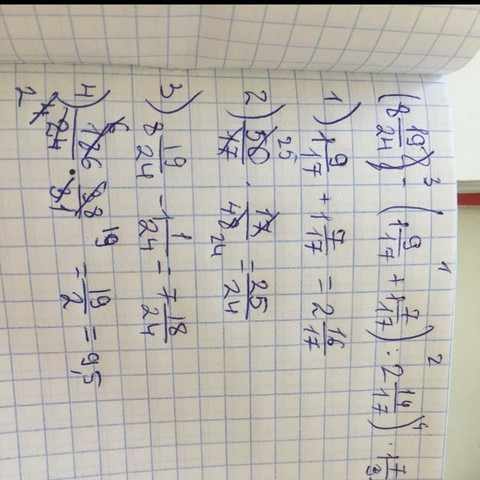 3 1 2 4
(8 19/24 - (1 9/17 + 1 7/17) : 2 14/17) ·
1) 1 9/17 + 1 7/17 = 2 16/17
2) 50/17 · 17/48 = 25/24
3) 8 19/24 - 1 1/24 = 7 18/24
4) 186/24 · 38/31 = 19/2 = 9,5